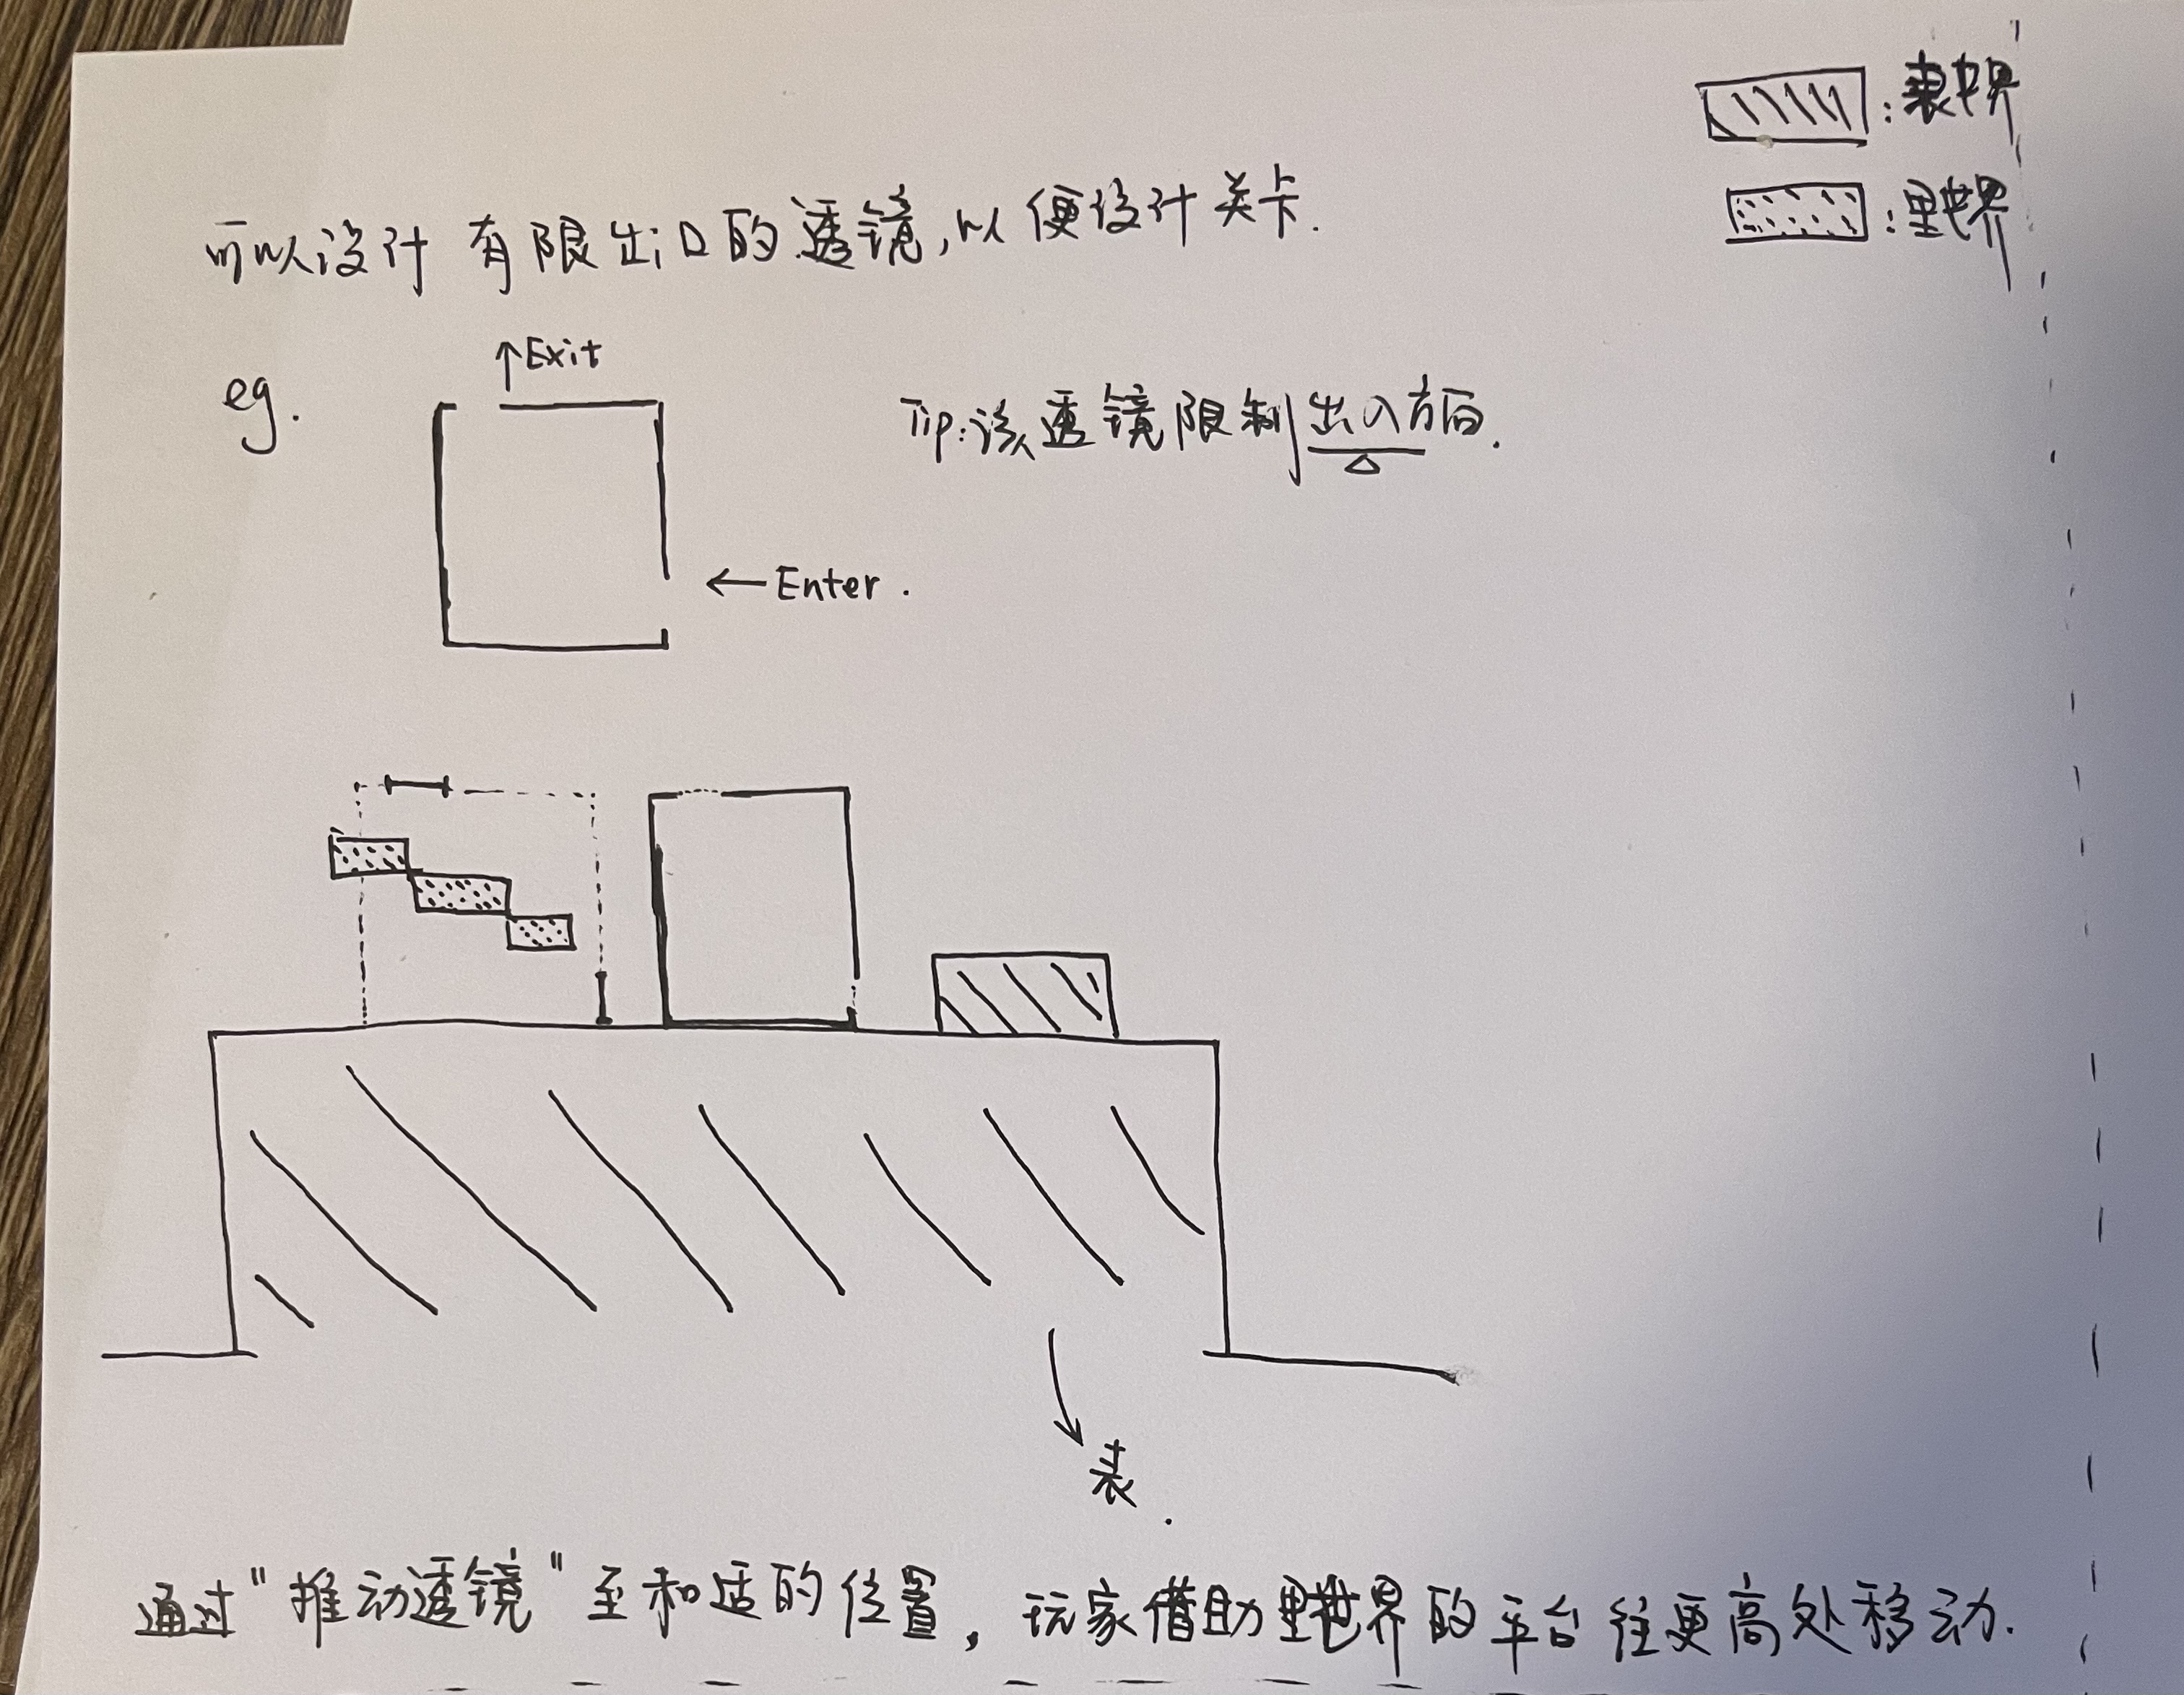 :表世界
:里世界
可以设计有限出口的透镜,以便设计关卡.
eg.
↑Exit
Tip:该透镜限制出入方向.
←Enter.
表.
通过"推动透镜"至和适的位置,玩家借助里世界的平台往更高处移动.